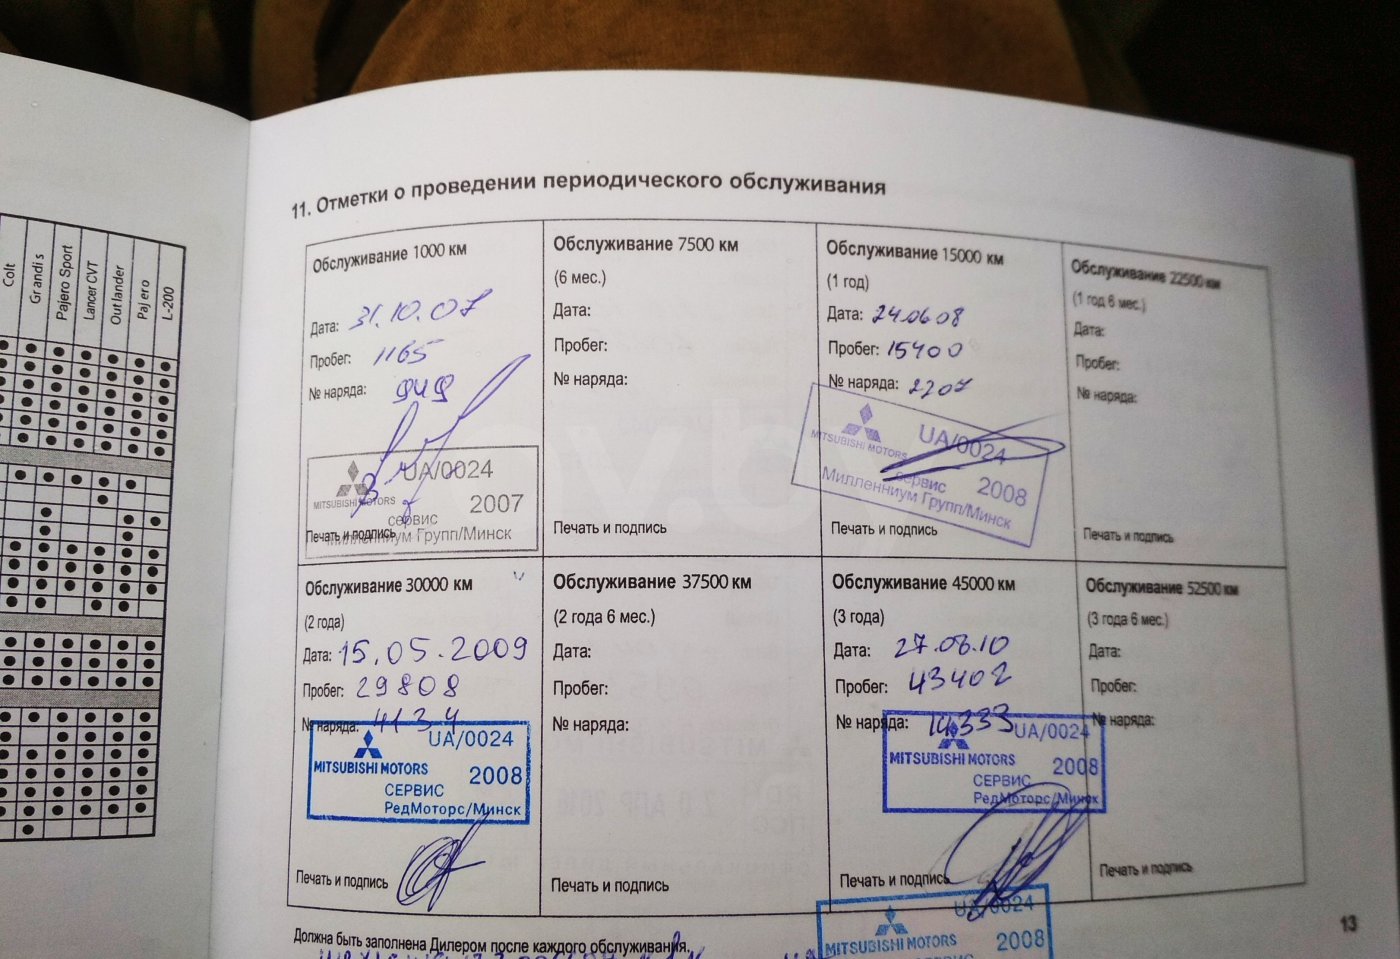 Colt
Grandis
Pajero Sport
Lancer CVT
Outlander
Pajero
L-200
11. Отметки о проведении периодического обслуживания
Обслуживание 1000 км
Дата: 31.10.07
Пробег: 1165
№ наряда: 949
MITSUBISHI MOTORS
UA/0024
2007
сервис
Миллениум Групп/Минск
Печать и подпись
Обслуживание 7500 км
(6 мес.)
Дата:
Пробег:
№ наряда:
Печать и подпись
Обслуживание 15000 км
(1 год)
Дата: 24.06.08
Пробег: 15400
№ наряда: 2207
MITSUBISHI MOTORS
UA/0024
сервис
2008
Миллениум Групп/Минск
Печать и подпись
Обслуживание 22500 км
(1 год 6 мес.)
Дата:
Пробег:
№ наряда:
Печать и подпись
Обслуживание 30000 км
(2 года)
Дата: 15.05.2009
Пробег: 29808
№ наряда: 4134
UA/0024
MITSUBISHI MOTORS
2008
СЕРВИС
РедМоторс/Минск
Печать и подпись
Обслуживание 37500 км
(2 года 6 мес.)
Дата:
Пробег:
№ наряда:
Печать и подпись
Обслуживание 45000 км
(3 года)
Дата: 27.08.10
Пробег: 43402
№ наряда: 14333
UA/0024
MITSUBISHI MOTORS
2008
СЕРВИС
РедМоторс/Минск
Печать и подпись
Обслуживание 52500 км
(3 года 6 мес.)
Дата:
Пробег:
№ наряда:
Печать и подпись
Должна быть заполнена Дилером после каждого обслуживания.
UA/0024
MITSUBISHI MOTORS
2008
СЕРВИС
13